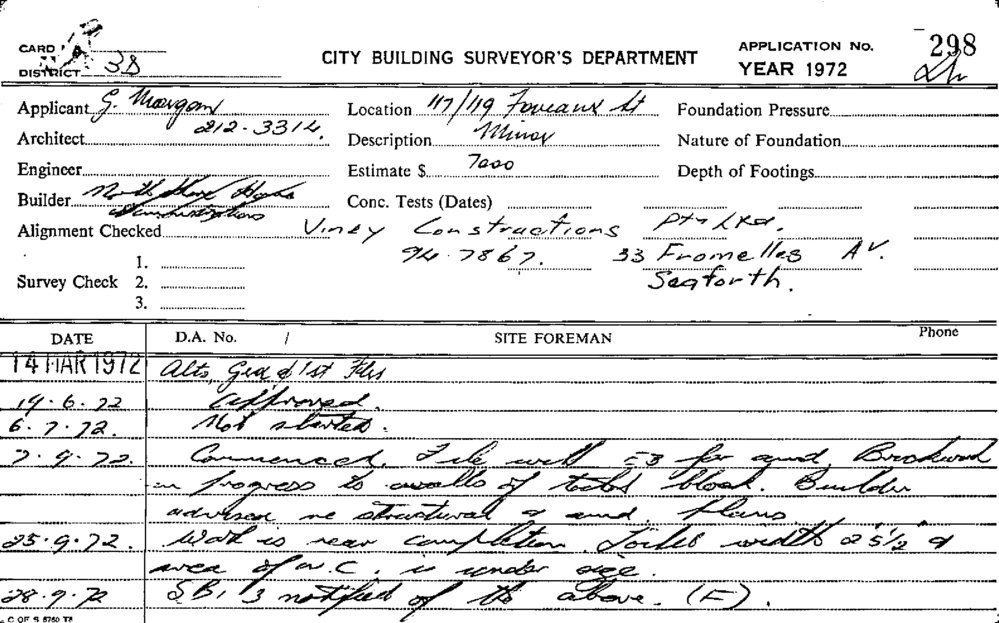 CARD
DISTRICT 3B
CITY BUILDING SURVEYOR'S DEPARTMENT
APPLICATION No. 298
YEAR 1972
Applicant G. Morgan
212-3314
Location 117/119 Foveaux St
Foundation Pressure
Architect
Description Minor
Nature of Foundation
Engineer
Estimate $ 7000
Depth of Footings
Builder North Shore
Conc. Tests (Dates)
Alignment Checked Viney Constructions Pty Ltd.
94-7867. 33 Fromelles Av.
Seaforth.
Survey Check 1.
2.
3.
DATE D.A. No. / SITE FOREMAN Phone
14 MAR 1972 Alts, Grd & 1st Flrs
19.6.72 Approved.
6.7.72. Not started.
7.9.72. Commenced. File with E3 for amd. Brickwork
in progress to walls of toilet block. Builder
advised re structural & amd. plans
25.9.72. Work is near completion. Toilet width 2'5½" &
area of W.C. is under size.
28.9.72 SB, 3 notified of the above. (F).
C OF S 8760 T8